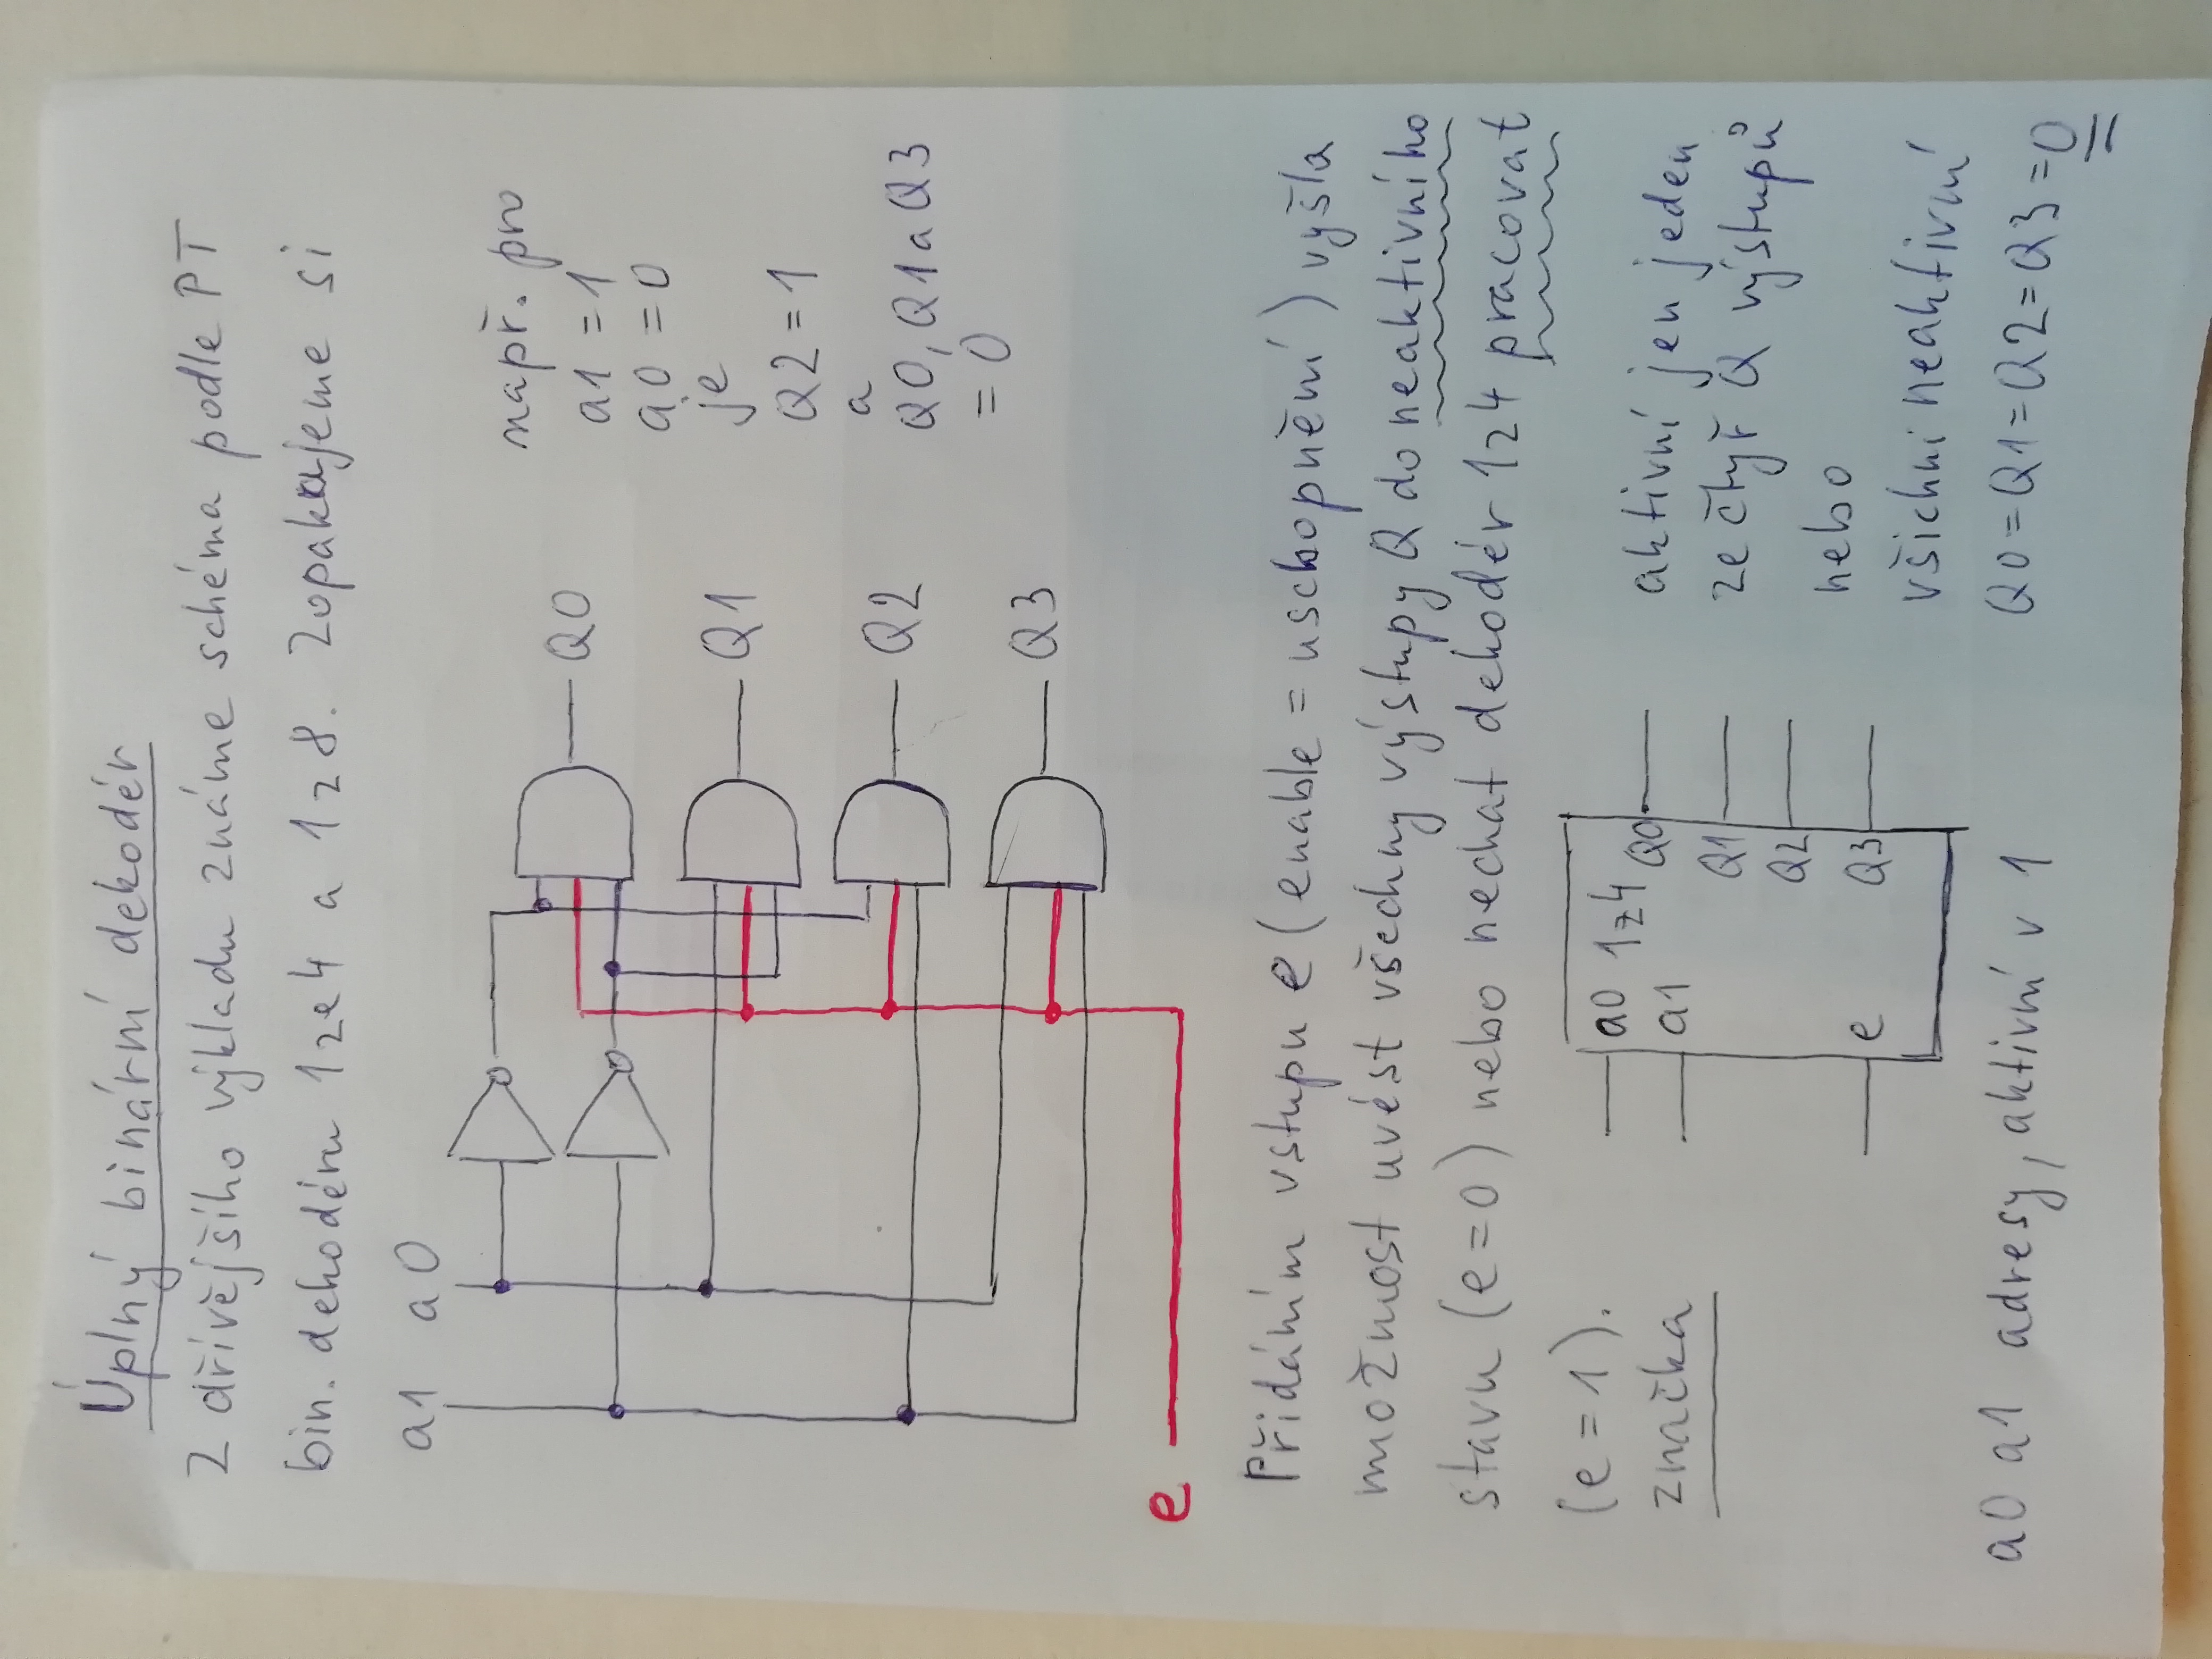 Úplný binární dekodér
Z dřívějšího výkladu známe schéma podle PT
bin. dekodéru 1 ze 4 a 1 z 8. Zopakujeme si
a1 a0
Q0
Q1
Q2
Q3
e
např. pro
a1 = 1
a0 = 0
je
Q2 = 1
a
Q0, Q1 a Q3
= 0
Přidáním vstupu e (enable = uschopnění) vyšla
možnost uvést všechny výstupy Q do neaktivního
stavu (e=0) nebo nechat dekodér 1z4 pracovat
(e = 1).
značka
a0 1z4
Q0
a1
Q1
Q2
e Q3
aktivní jen jeden
ze čtyř Q výstupů
nebo
všichni neaktivní
Q0=Q1=Q2=Q3=0
a0 a1 adresy, aktivní v 1